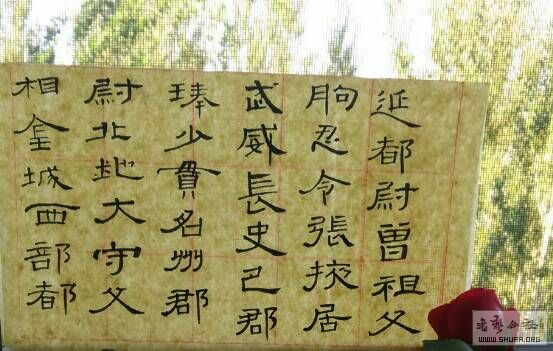 相金城西部都
尉北地大守父
琫少貫名州郡
武威長史巴郡
朐忍令張掖居
延都尉曾祖父
WWW.SHUFA.ORG